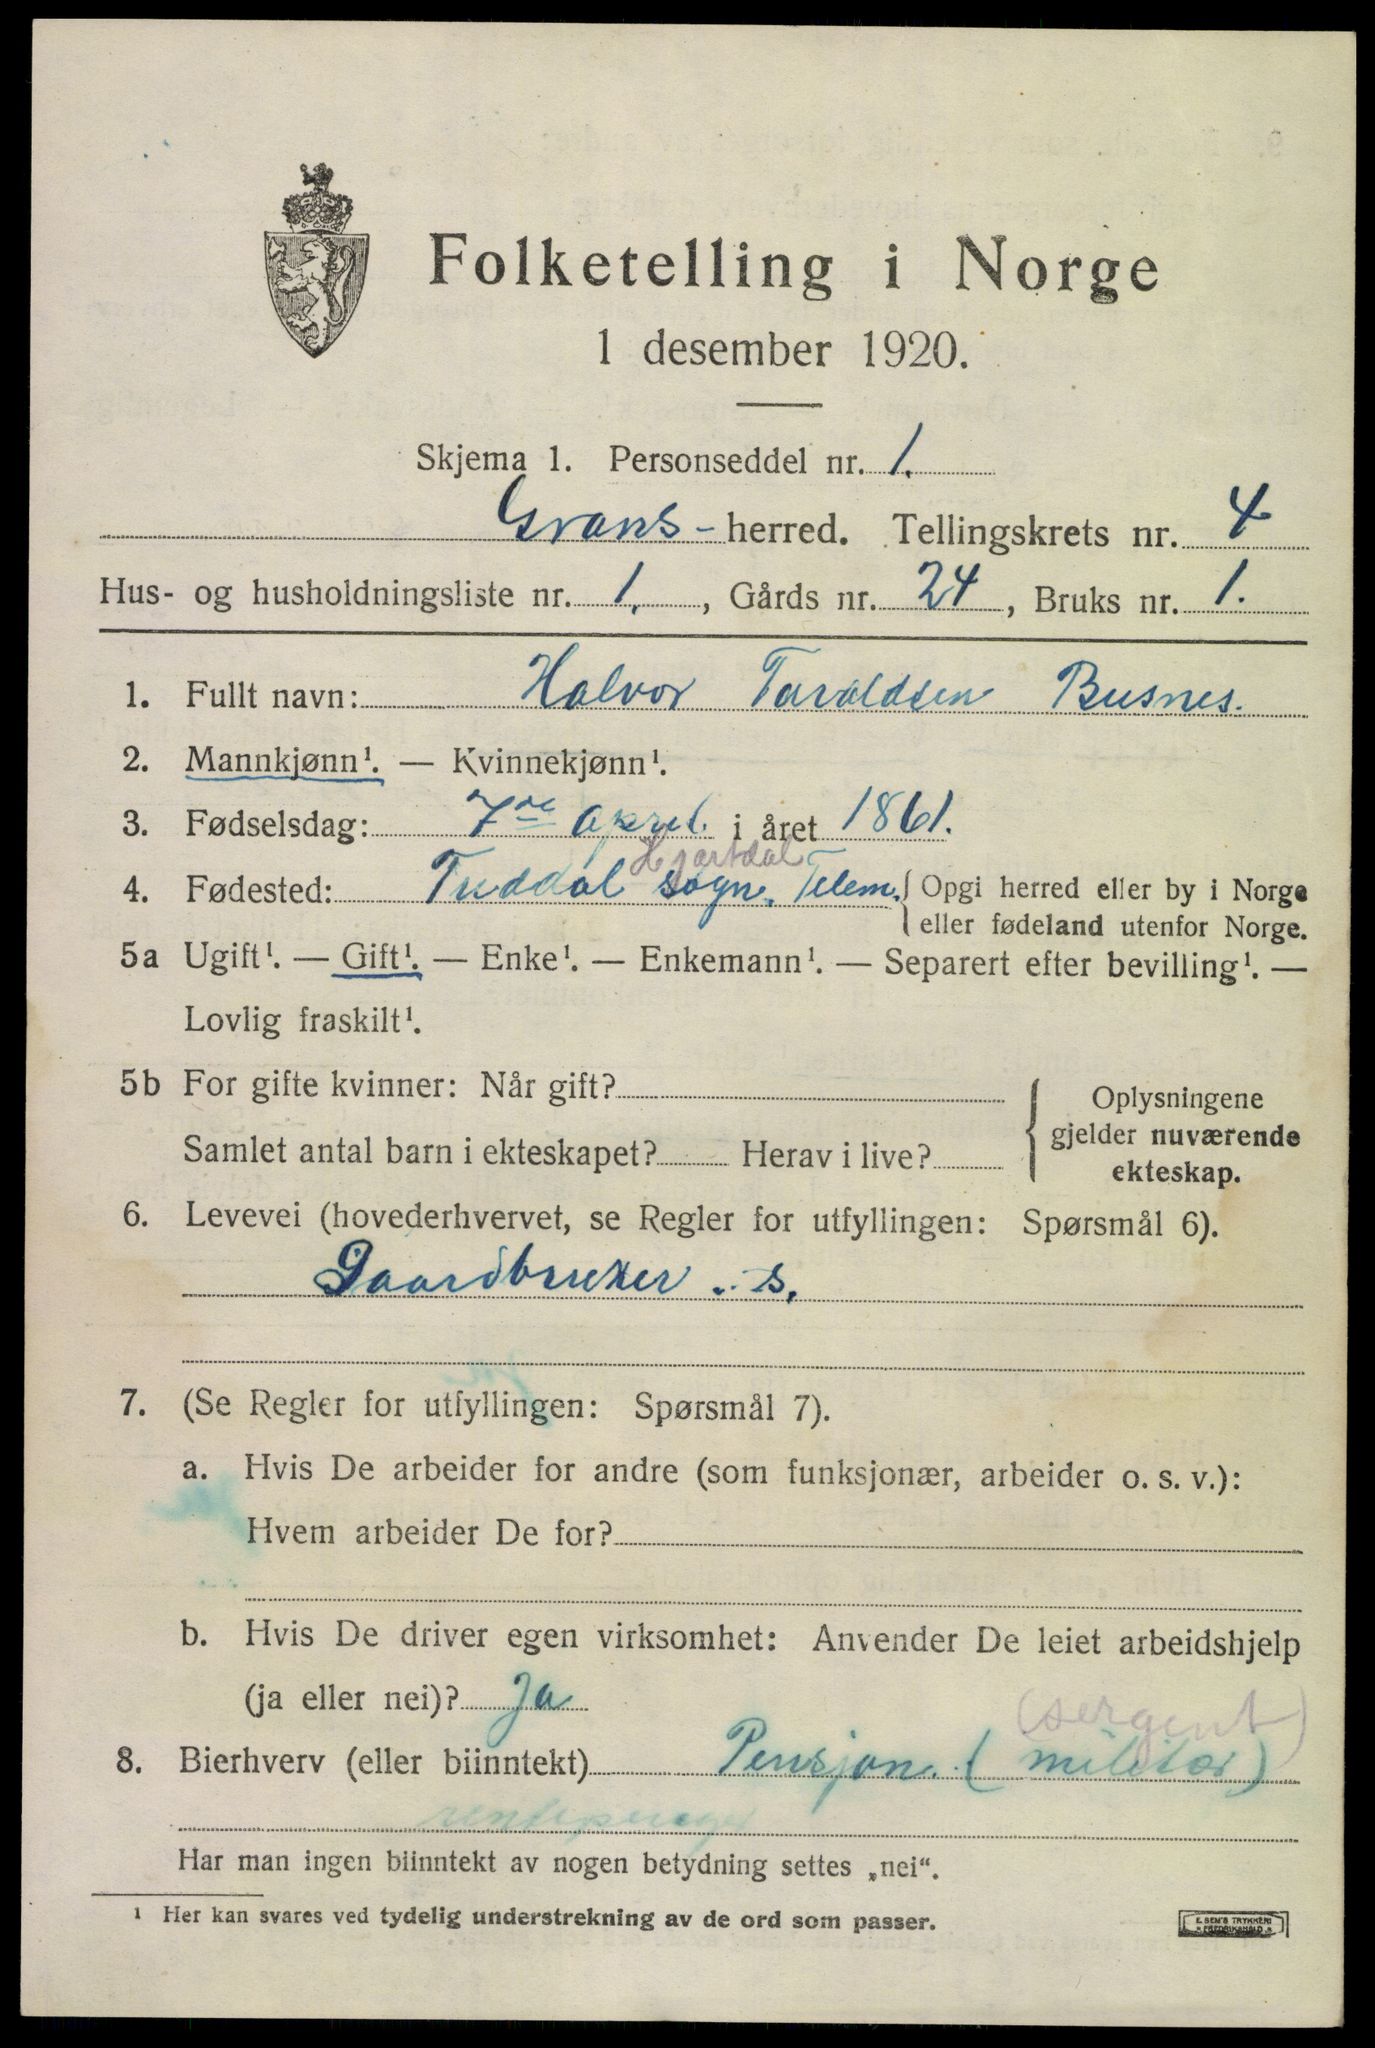 Folketelling i Norge
1 desember 1920.
Skjema 1. Personseddel nr. 1.
Grans - herred. Tellingskrets nr. 4
Hus- og husholdningsliste nr. 1. , Gårds nr. 24 , Bruks nr. 1.
1. Fullt navn: Halvor Taraldsen Busnes.
2. Mannkjønn¹. — Kvinnekjønn¹.
3. Fødselsdag: 7de april i året 1861.
Hjartdal
4. Fødested: Tuddal sogn, Telem. { Opgi herred eller by i Norge
eller fødeland utenfor Norge.
5a Ugift¹. — Gift¹. — Enke¹. — Enkemann¹. — Separert efter bevilling¹. —
Lovlig fraskilt¹.
5b For gifte kvinner: Når gift?
Samlet antal barn i ekteskapet? Herav i live?
{ Oplysningene
gjelder nuværende
ekteskap.
6. Levevei (hovederhvervet, se Regler for utfyllingen: Spørsmål 6).
Gaardbruker . s.
7. (Se Regler for utfyllingen: Spørsmål 7).
a. Hvis De arbeider for andre (som funksjonær, arbeider o. s. v.):
Hvem arbeider De for?
b. Hvis De driver egen virksomhet: Anvender De leiet arbeidshjelp
(ja eller nei)? Ja
(sergent)
8. Bierhverv (eller biinntekt) Pensjon. (militær)
rentepenger
Har man ingen biinntekt av nogen betydning settes „nei“.
¹ Her kan svares ved tydelig understrekning av de ord som passer.
E. SEM'S TRYKKERI
FREDRIKSHALD